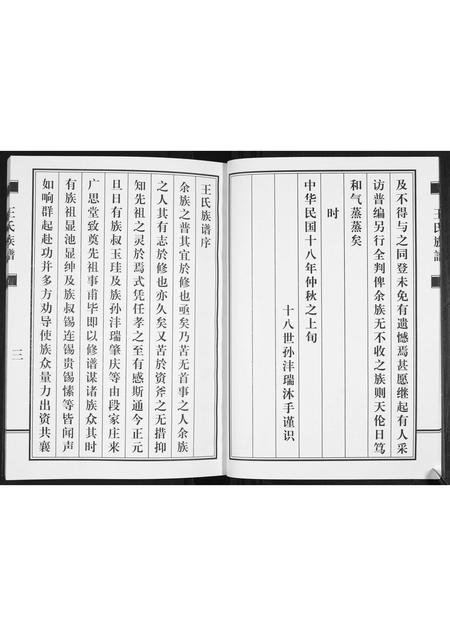 王氏族谱
及不得与之同登未免有遗憾焉甚愿继起有人采
访普编另行全判俾余族无不收之族则天伦日笃
和气蒸蒸矣
时
中华民国十八年仲秋之上旬
十八世孙沣瑞沐手谨识
王氏族谱序
余族之普其宜於修也亟矣乃苦无首事之人余族
之人其有志於修也亦久矣又苦於资斧之无措抑
知先祖之灵於焉式凭任孝之至有感斯通今正元
旦日有族叔玉珪及族孙沣瑞肇庆等由段家庄来
广思堂致奠先祖事甫毕即以修谱谋诸族众其时
有族祖显池显绅及族叔锡连锡贵锡愫等皆闻声
如响群起赴功并多方劝导使族众量力出资共襄
王氏族谱
三